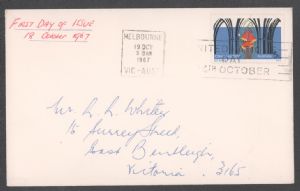 FIRST DAY OF ISSUE
18 October 1967
MELBOURNE
19 OCT
1967
VIC-AUST
UNITED
DAY
24TH OCTOBER
Mr L. L. Whitley
16 Surrey Street,
East Bentleigh,
Victoria. 3165